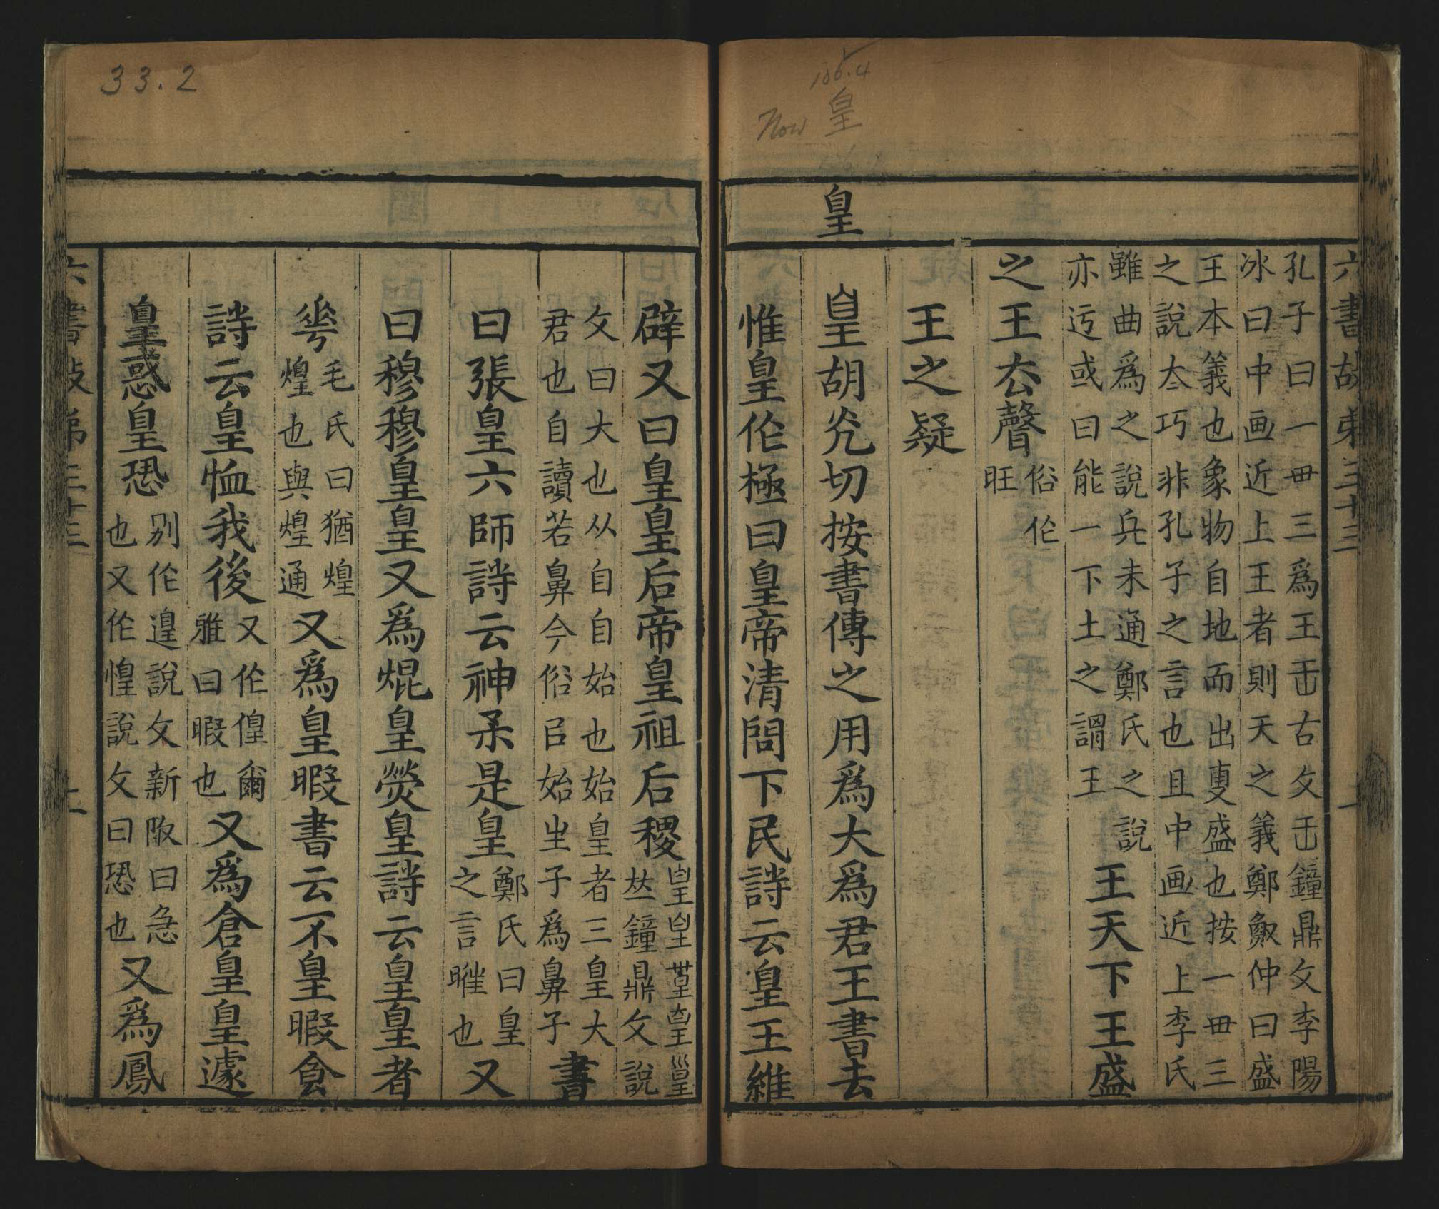 33.2
106.4
Now 皇
皇
六書故弟三十三
孔子曰一毌三爲王𠙻古文𠙻鐘鼎文李陽
冰曰中画近上王者則天之義鄭䱷仲曰盛
王本義也象物自地而出叓盛也按一毌三
之說太巧非孔子之言也且中画近上李氏
雖曲爲之說兵未通鄭氏之說
亦迃或曰能一下土之謂王
王天下王盛
之王厺聲
俗作
旺
王之疑
皇胡光切按書傳之用爲大爲君王書去
惟皇作極曰皇帝清問下民詩云皇王維
辟又曰皇皇后帝皇祖后稷
皇皇𦤃皇皇
𠀤鐘鼎文說
文曰大也从自自始也始皇者三皇大
君也自讀若鼻今俗㠯始生子爲鼻子
書
曰張皇六師詩云神禾是皇
鄭氏曰皇
之言暀也
又
曰穆穆皇皇又爲焜皇熒皇詩云皇皇者
華
毛氏曰猶煌
煌也與煌通
又爲皇暇書云不皇暇食
詩云皇恤我後
又作偟爾
雅曰暇也
又爲倉皇皇遽
皇惑皇恐
別作遑說文新附曰急
也又作惶說文曰恐也
又爲鳳
六書故弟三十三